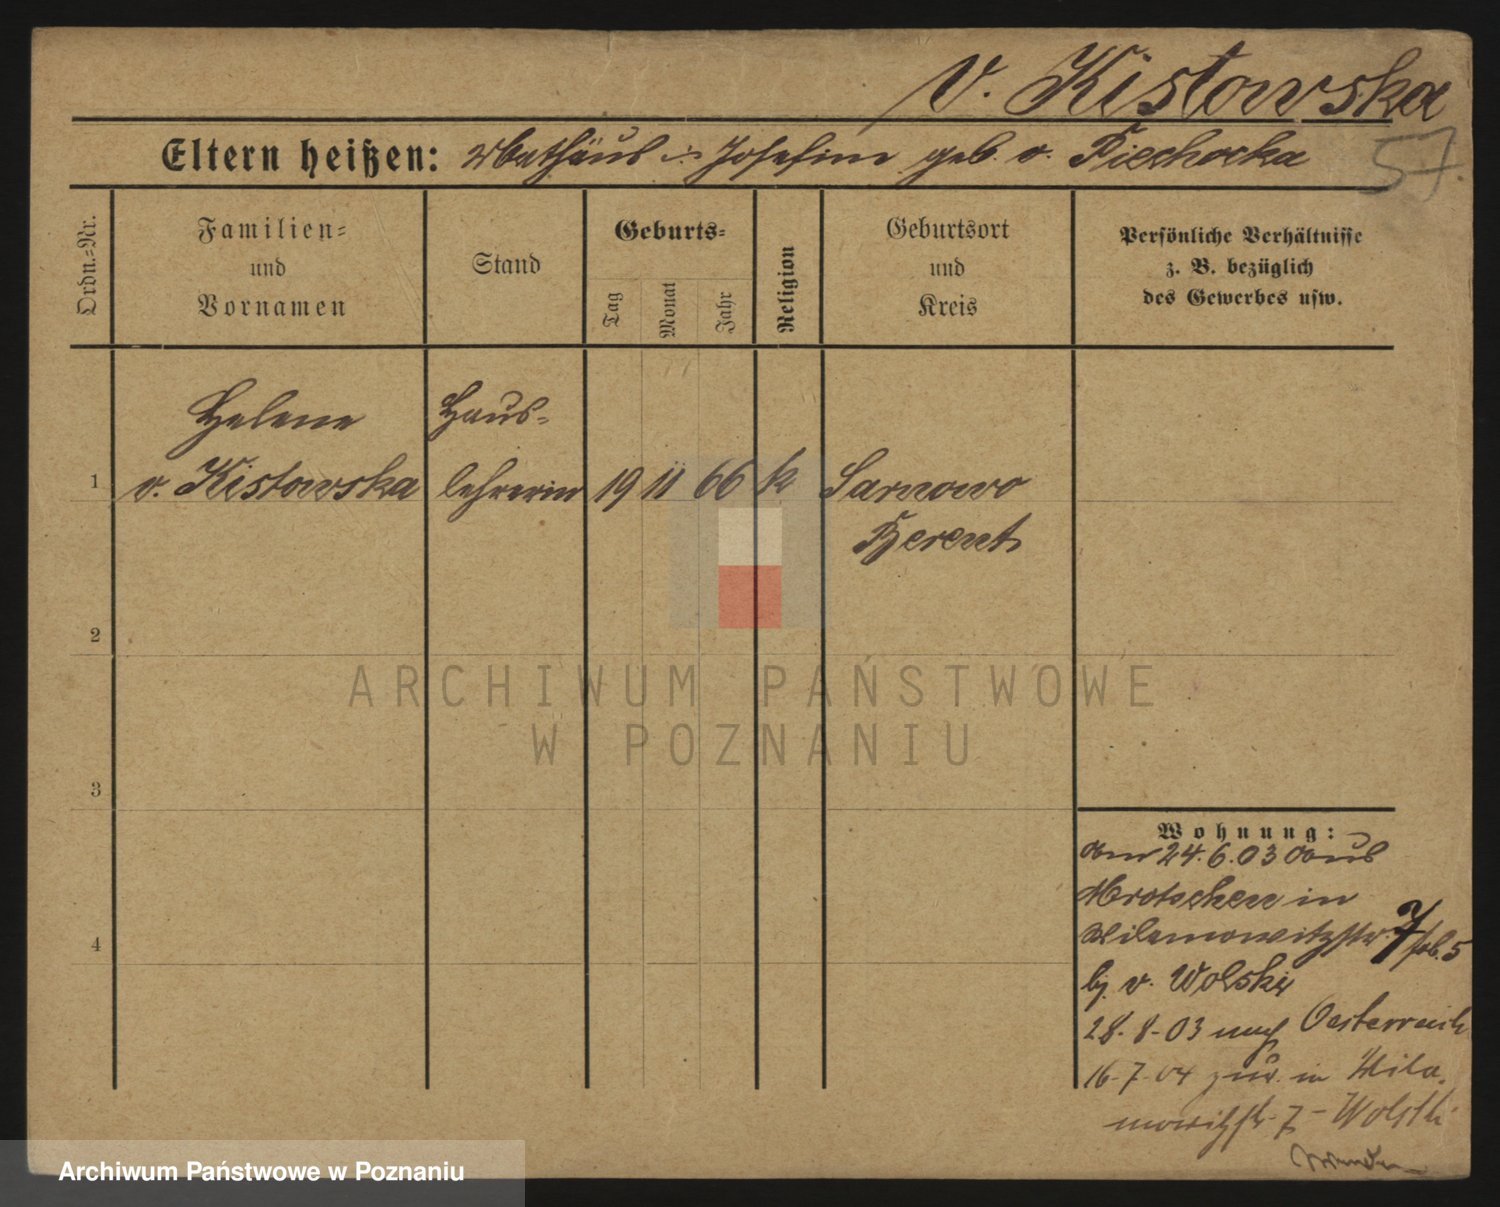 v. Kistowska
57.
Eltern heißen: Mathäus u. Josefine geb. v. Piechocka
Ordn.-Nr.
Familien-
und
Vornamen
Stand
Geburts-
Tag
Monat
Jahr
Religion
Geburtsort
und
Kreis
Persönliche Verhältnisse
z. B. bezüglich
des Gewerbes usw.
Helene
v. Kistowska
Haus-
lehrerin
1
19 11 66 k
Sarnowo
Berent
2
3
4
ARCHIWUM PAŃSTWOWE
W POZNANIU
Wohnung:
am 24.6.03 aus
Mrotschen in
Wilamowitzstr. 7
b. v. Wolski
28.8.03 nach Oesterreich
16.7.04 zur. in Wila-
mowitzstr. 7 Wolski
Archiwum Państwowe w Poznaniu